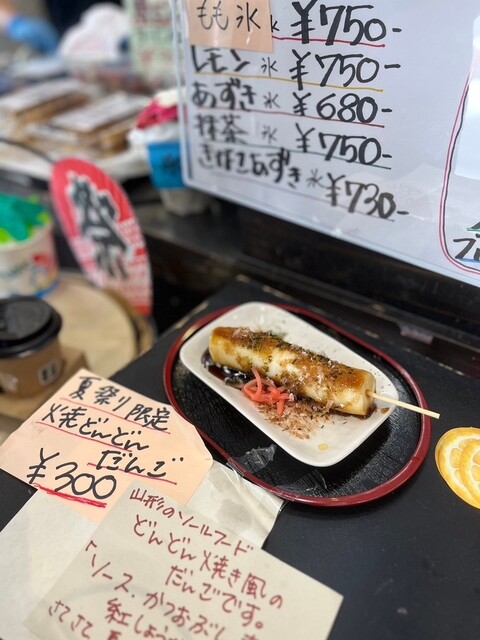 もも氷 ¥750-
レモン氷 ¥750-
あずき氷 ¥680-
抹茶氷 ¥750-
きなこあずき氷 ¥730-
祭
夏祭り限定
火焼どんどん
だんご
¥300
山形のソールフード
どんどん焼き風の
だんごです。
ソース、かつおぶし
紅しょう